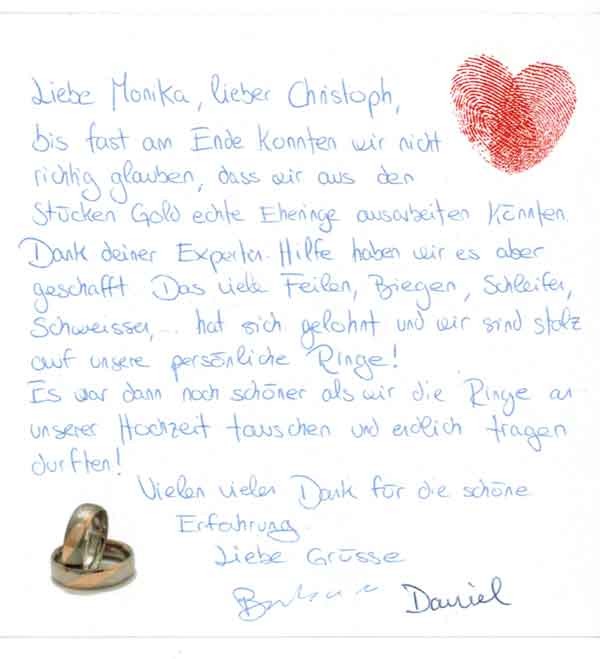 Liebe Monika, lieber Christoph,
bis fast am Ende konnten wir nicht
richtig glauben, dass wir aus den
Stücken Gold echte Eheringe ausarbeiten könnten.
Dank deiner Experten-Hilfe haben wir es aber
geschafft. Das viele Feilen, Biegen, Schleifen,
Schweissen,... hat sich gelohnt und wir sind stolz
auf unsere persönliche Ringe!
Es war dann noch schöner als wir die Ringe an
unserer Hochzeit tauschen und endlich tragen
durften!
Vielen vielen Dank für die schöne
Erfahrung.
Liebe Grüsse
Daniel